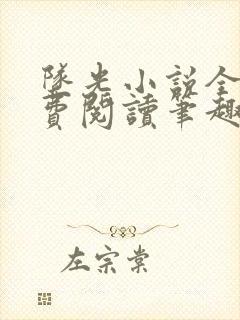 隊光小說全
費閱讀筆趣
左宗棠